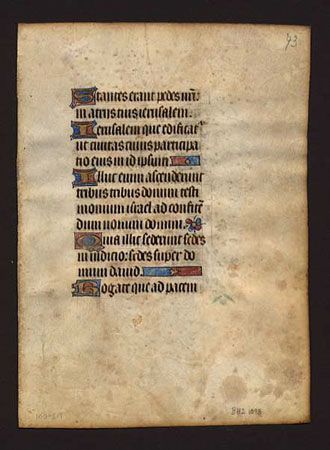 73
Stantes erant pedes nr̄i
in atriis tuis ierusalem.
Ierusalem que edificat̄
ut ciuitas cuius participa
tio eius in id ipsum
Illuc enim ascenderunt
tribus tribus domini testi
monium israel ad confitē
dum nomini domini.
Quia illic sederunt sedes
in iudicio: sedes super do
mum dauid
Rogate que ad pacem